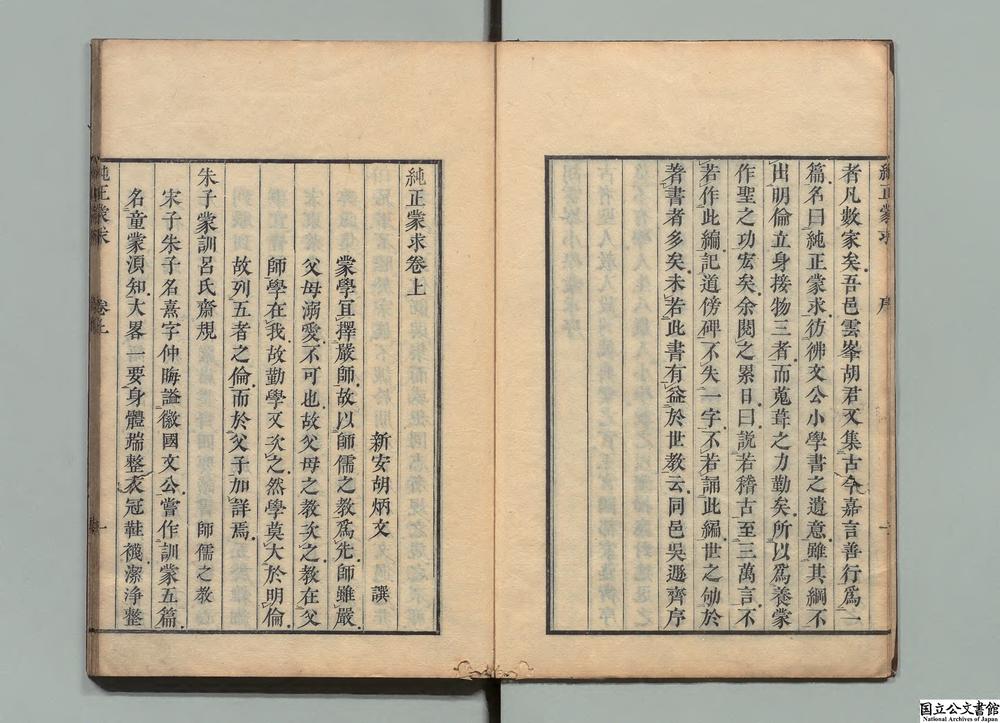 純正蒙求 序 一
者凡數家矣吾邑雲峯胡君又集古今嘉言善行爲一
篇名曰純正蒙求彷彿文公小學書之遺意雖其綱不
出明倫立身接物三者而蒐葺之力勤矣所以爲養蒙
作聖之功宏矣余閱之累日曰說若稽古至三萬言不
若作此編記道傍碑不失一字不若誦此編世之劬於
著書者多矣未若此書有益於世教云同邑吳遯齊序
純正蒙求卷上
新安胡炳文 譔
蒙學亘擇嚴師故以師儒之教爲先師雖嚴
父母溺愛不可也故父母之教次之教在父
師學在我故勤學又次之然學莫大於明倫
故列五者之倫而於父子加詳焉
朱子蒙訓呂氏齋規 師儒之教
宋子朱子名熹字仲晦謚徽國文公嘗作訓蒙五篇
名童蒙湏知大畧一要身體端整衣冠鞋襪潔淨整
純正蒙求 卷上 一
国立公文書館
National Archives of Japan